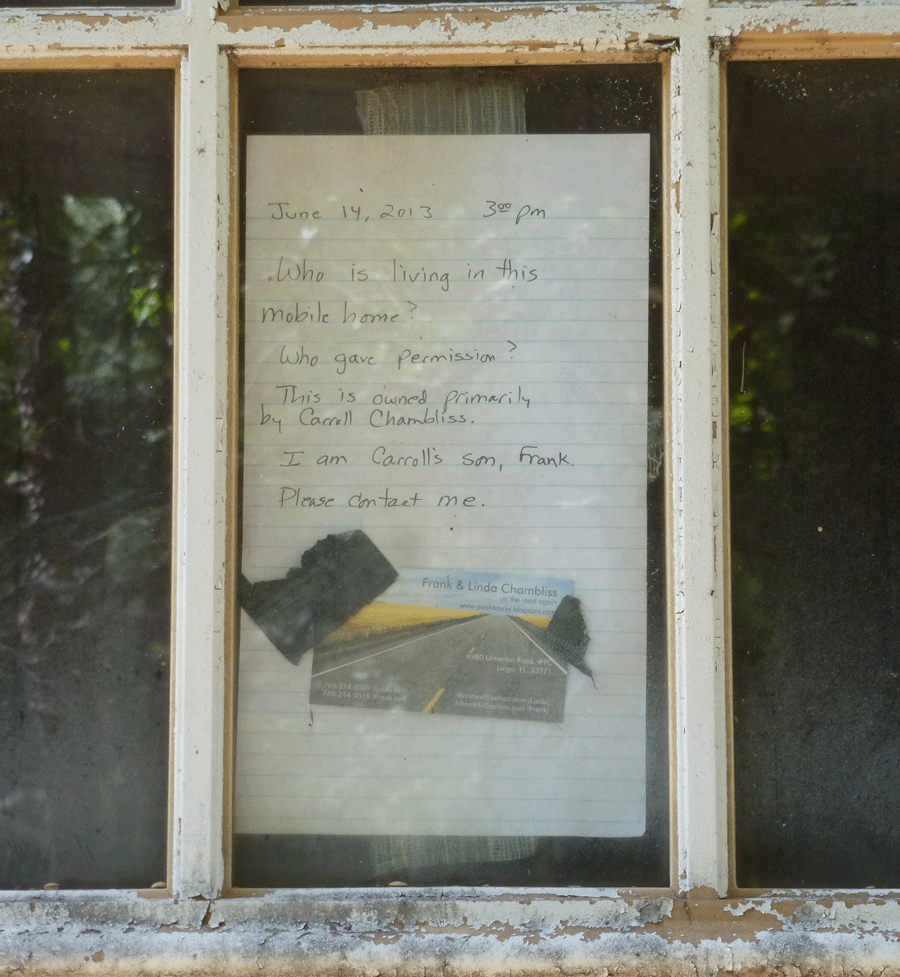 June 14, 2013 3⁰⁰ pm
Who is living in this
mobile home?
Who gave permission?
This is owned primarily
by Carroll Chambliss.
I am Carroll's son, Frank.
Please contact me.
Frank & Linda Chambliss
on the road again
6980 Ulmerton Road, #9C
Largo, FL 33771